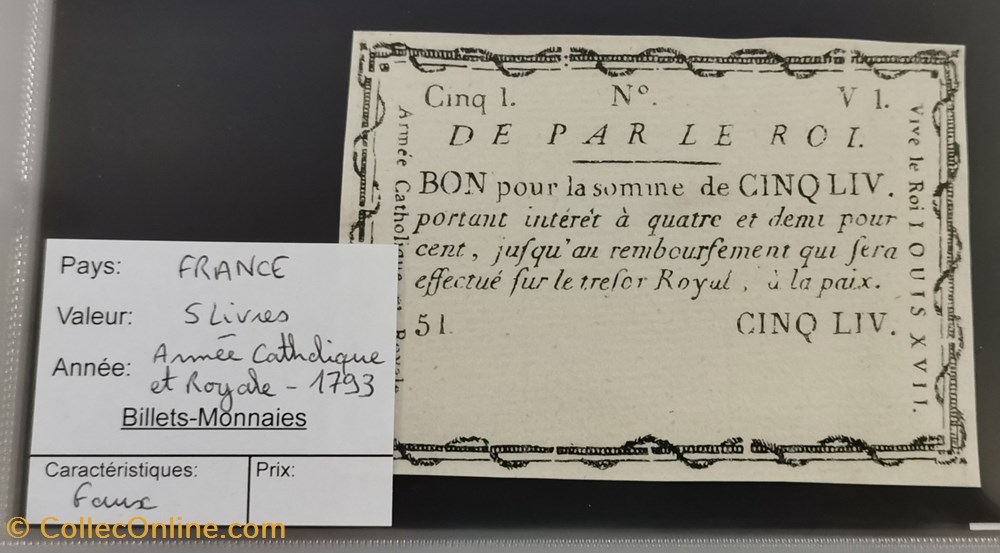 Cinq l. N°. V l.
DE PAR LE ROI.
BON pour la somme de CINQ LIV.
portant intérêt à quatre et demi pour
cent, juſqu'au rembourſement qui ſera
effectué ſur le treſor Royal, à la paix.
5 l. CINQ LIV.
Armée Catholique et Royale
Vive le Roi LOUIS XVII.
Pays: FRANCE
Valeur: 5 Livres
Année: Armée Catholique
et Royale - 1793
Billets-Monnaies
Caractéristiques: Prix:
Faux
© CollecOnline.com